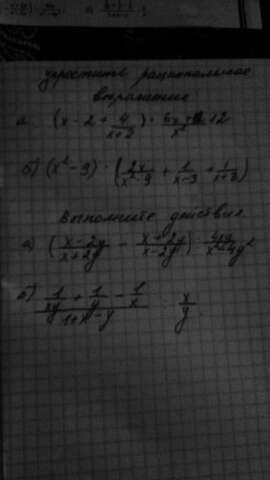 упростите рациональное
выражение
а. (x - 2 + 4/(x+2)) · 
б) (x² - 9) · (2x/(x²-9) + 1/(x-3) + 1/(x+3))
Выполните действия
а) ((x-2y)/(x+2y) - (x+2y)/(x-2y)) 
б) (1/(xy) + 1/y - 1/x)/(1+x-y) : x/y